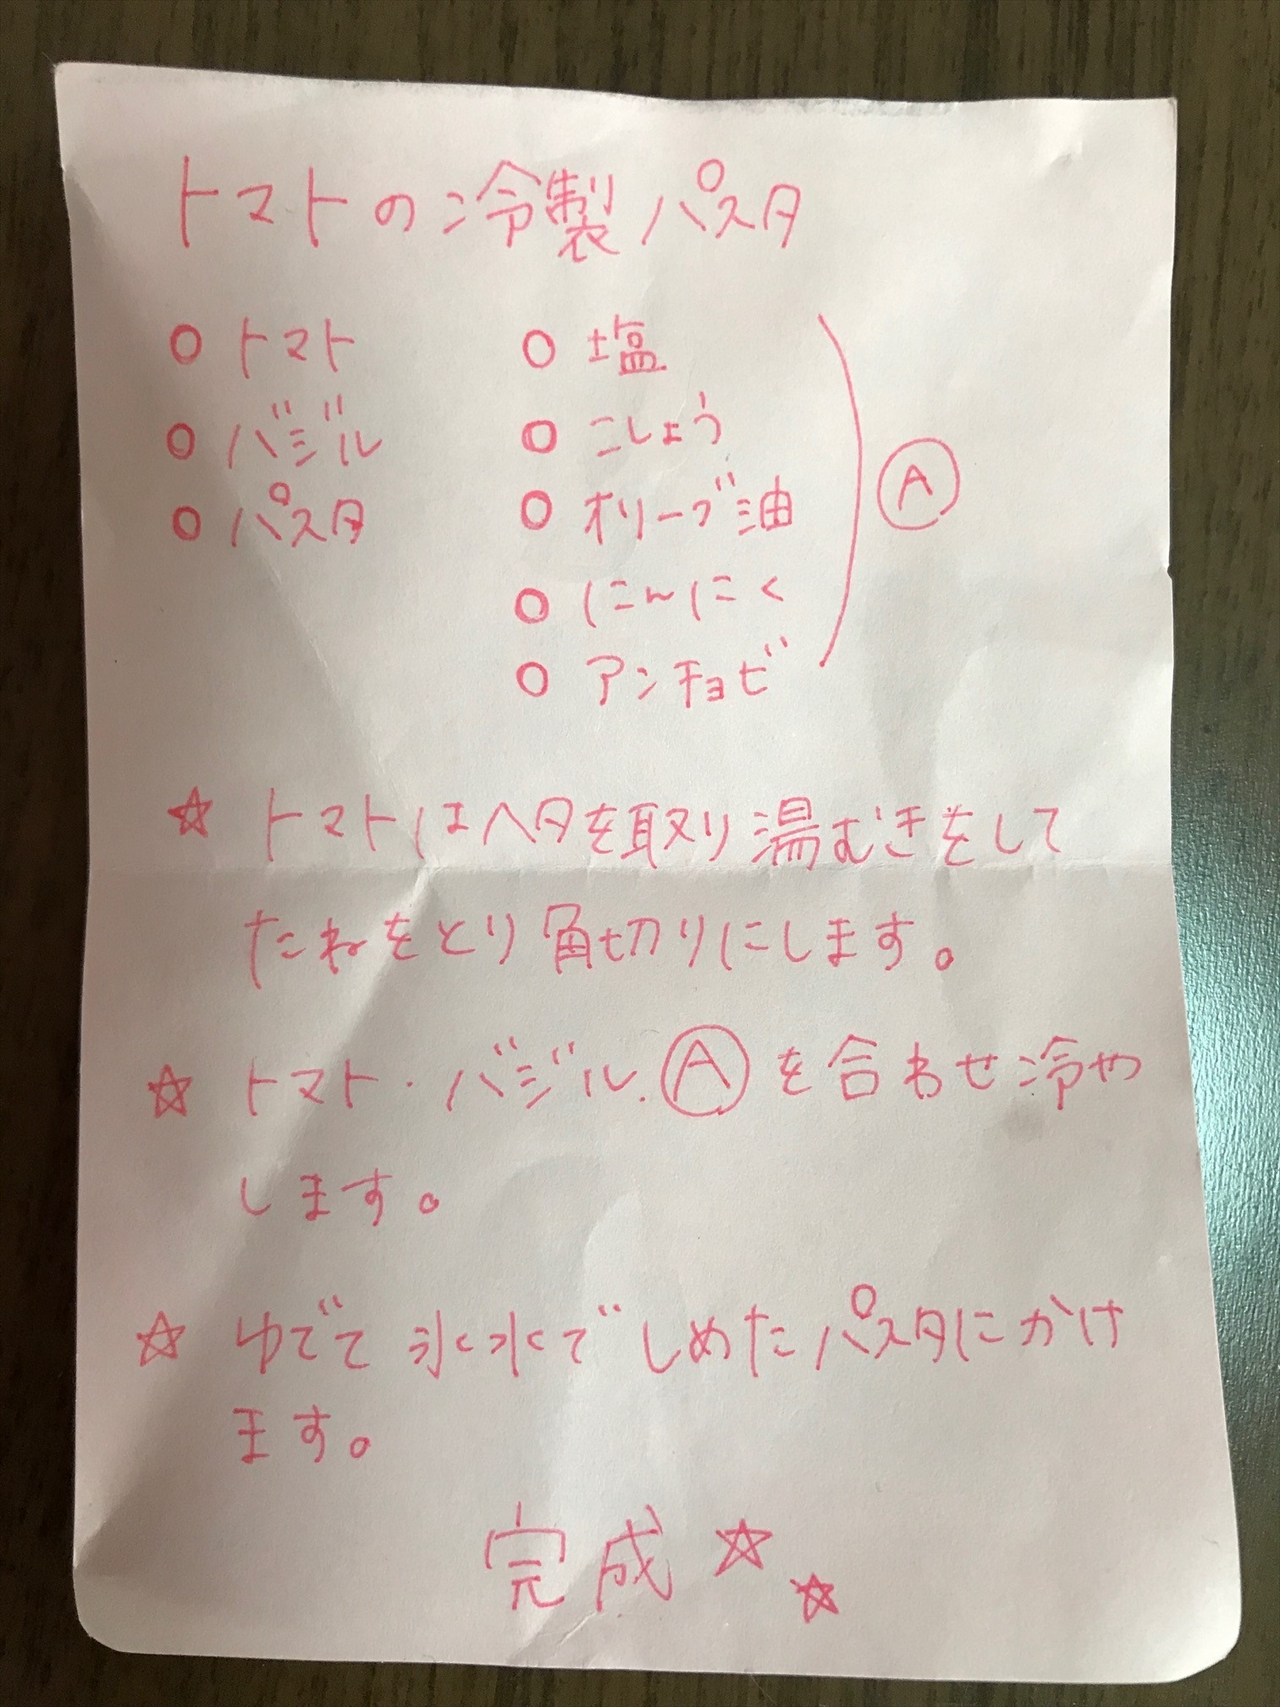 トマトの冷製パスタ
○ トマト
○ バジル
○ パスタ
○ 塩
○ こしょう
○ オリーブ油
○ にんにく
○ アンチョビ
Ⓐ
☆ トマトはヘタを取り湯むきをして
たねをとり角切りにします。
☆ トマト・バジル.Ⓐを合わせ冷や
します。
☆ ゆでて氷水でしめたパスタにかけ
ます。
完成☆☆